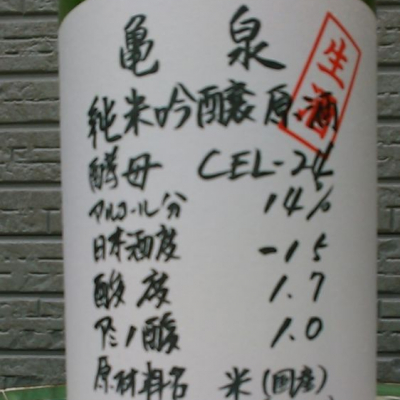 亀泉
生酒
純米吟醸原酒
酵母 CEL-24
アルコール分 14%
日本酒度 -15
酸度 1.7
アミノ酸 1.0
原材料名 米(国産)